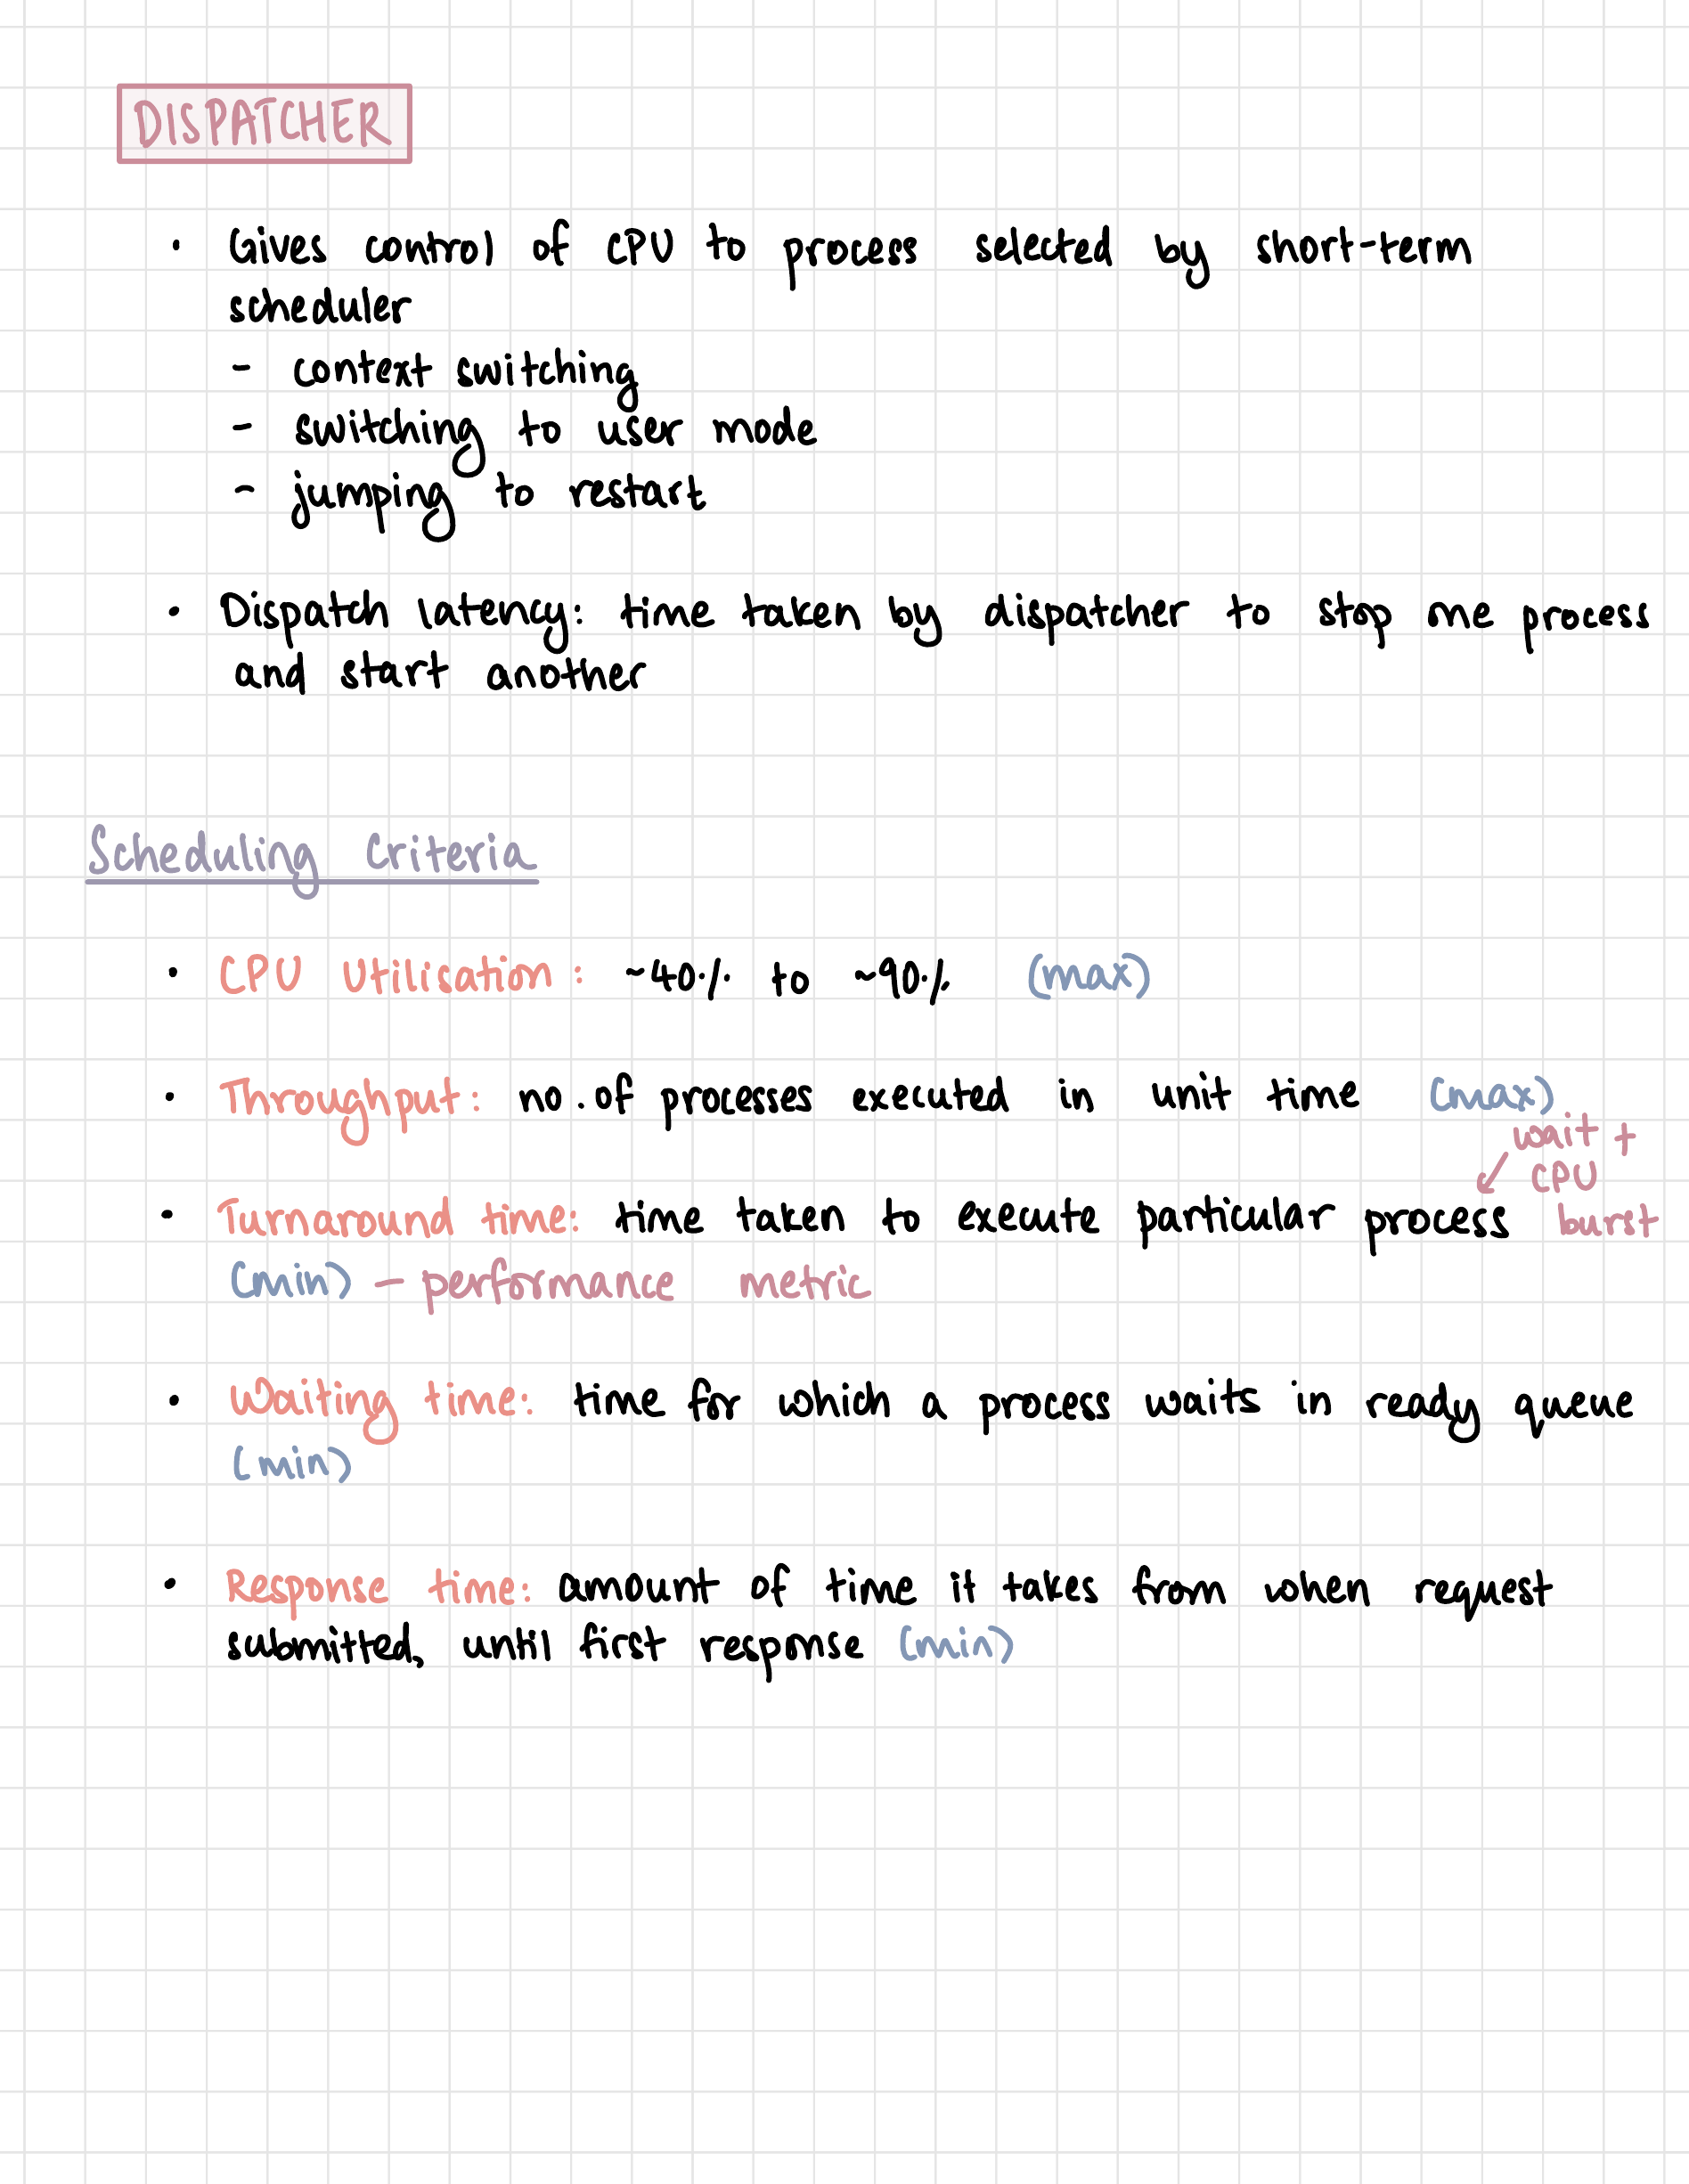 DISPATCHER
• Gives control of CPU to process selected by short-term
scheduler
- context switching
- switching to user mode
- jumping to restart
• Dispatch latency: time taken by dispatcher to stop one process
and start another
Scheduling Criteria
• CPU Utilisation: ~40% to ~90% (max)
• Throughput: no. of processes executed in unit time (max)
wait +
CPU
• Turnaround time: time taken to execute particular process burst
(min) - performance metric
• Waiting time: time for which a process waits in ready queue
(min)
• Response time: amount of time it takes from when request
submitted, until first response (min)